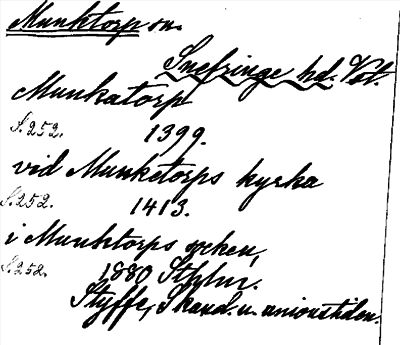 Munktorp sn.
Snefringe hd. Vstm.
Munkatorp
S. 252. 1399.
vid Munketorps kyrka
S. 252. 1413.
i Munktorps socken,
S. 252. 1880 Sthlm.
Styffe, Skand. u. unionstiden.